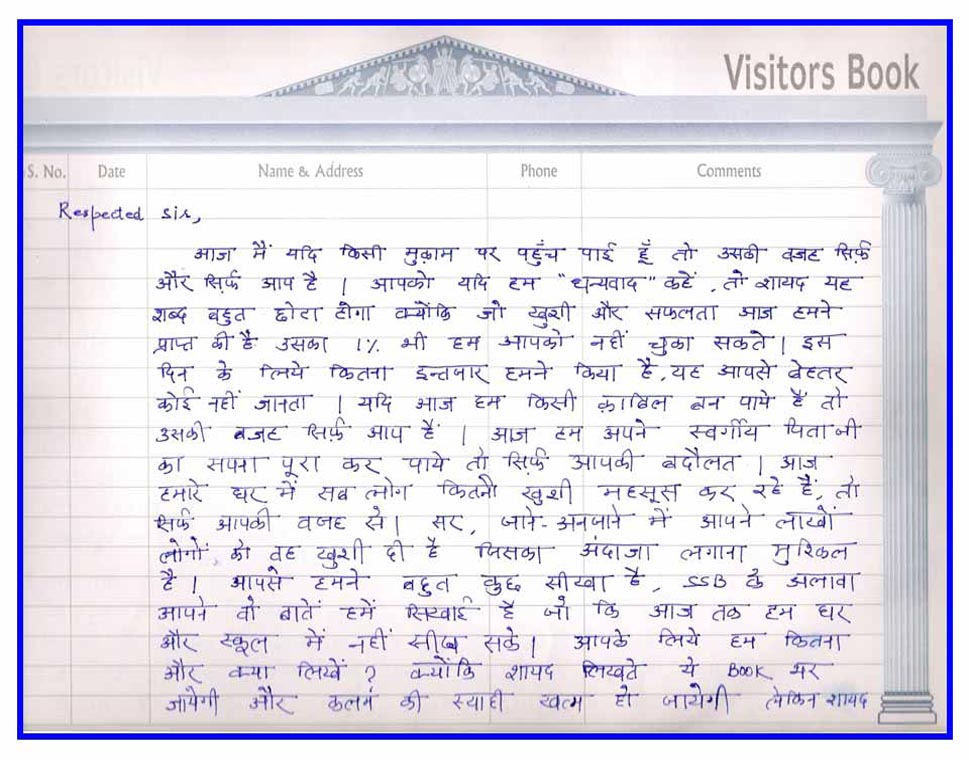 Visitors Book
S. No. Date Name & Address Phone Comments
Respected Sir,
आज मैं यदि किसी मुक़ाम पर पहुँच पाई हूँ तो उसकी वजह सिर्फ़
और सिर्फ़ आप है । आपको यदि हम "धन्यवाद" कहें , तो शायद यह
शब्द बहुत छोटा होगा क्योंकि जो खुशी और सफलता आज हमने
प्राप्त की है उसका 1% भी हम आपको नहीं चुका सकते । इस
दिन के लिये कितना इन्तजार हमने किया है, यह आपसे बेहतर
कोई नहीं जानता । यदि आज हम किसी क़ाबिल बन पाये हैं तो
उसकी वजह सिर्फ़ आप हैं । आज हम अपने स्वर्गीय पिताजी
का सपना पूरा कर पाये तो सिर्फ़ आपकी बदौलत । आज
हमारे घर में सब लोग कितनी खुशी महसूस कर रहे हैं, तो
सिर्फ़ आपकी वजह से । सर, जाने-अनजाने में आपने लाखों
लोगों को वह खुशी दी है जिसका अंदाजा लगाना मुश्किल
है । आपसे हमने बहुत कुछ सीखा है, SSB के अलावा
आपने वो बातें हमें सिखाई है जो कि आज तक हम घर
और स्कूल में नहीं सीख सके । आपके लिये हम कितना
और क्या लिखें ? क्योंकि शायद लिखते ये BOOK भर
जायेगी और कलम की स्याही खत्म हो जायेगी लेकिन शायद